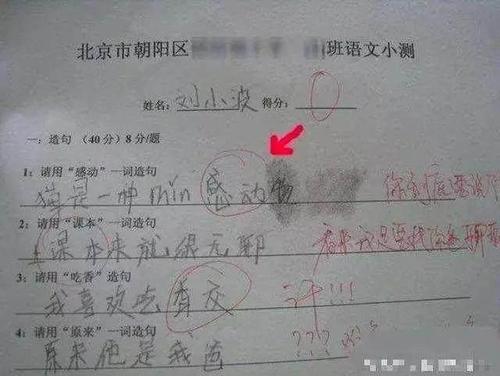 北京市朝阳区 班语文小测
姓名：刘小波 得分：0
一：造句（40分）8分/题
1：请用“感动”一词造句
猫是一种min感动物
你到底要说
2：请用“课本”一词造句
上课本来就很无聊
看来我是要找你爸聊聊
3：请用“吃香”造句
我喜欢吃香交
汁!!!
4：请用“原来”一词造句
原来他是我爸
???